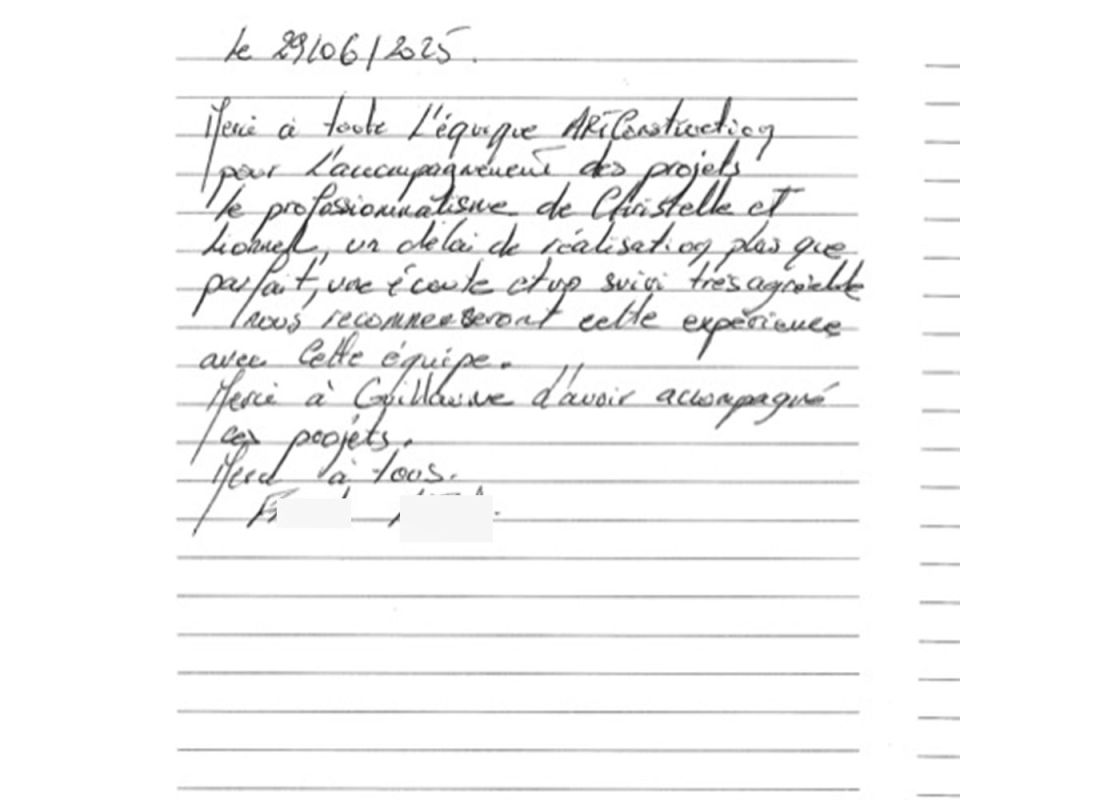 le 29/06/2025.
Merci à toute l'équique ARTConstruction
pour l'accompagnement des projets
le professionnalisme de Christelle et
Lionnel, un délai de réalisation plus que
parfait, une écoute et un suivi très agréable
nous recommenseront cette expérience
avec cette équipe.
Merci à Guillaume d'avoir accompagné
ces projets.
Merci à tous.